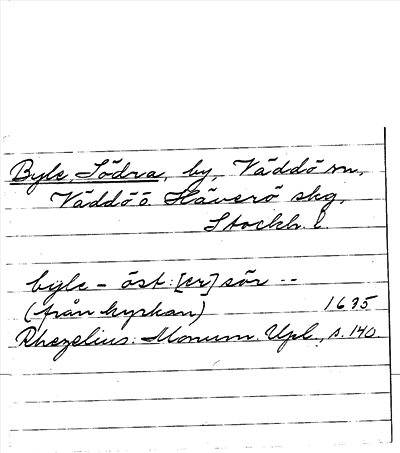 Byle, Södra, by, Väddö sn,
Väddö ö Häverö skg,
Stockh. l.
byle - öst: [er] sör --
(från kyrkan) 1635
Rhezelius: Monum. Upl., s. 140.